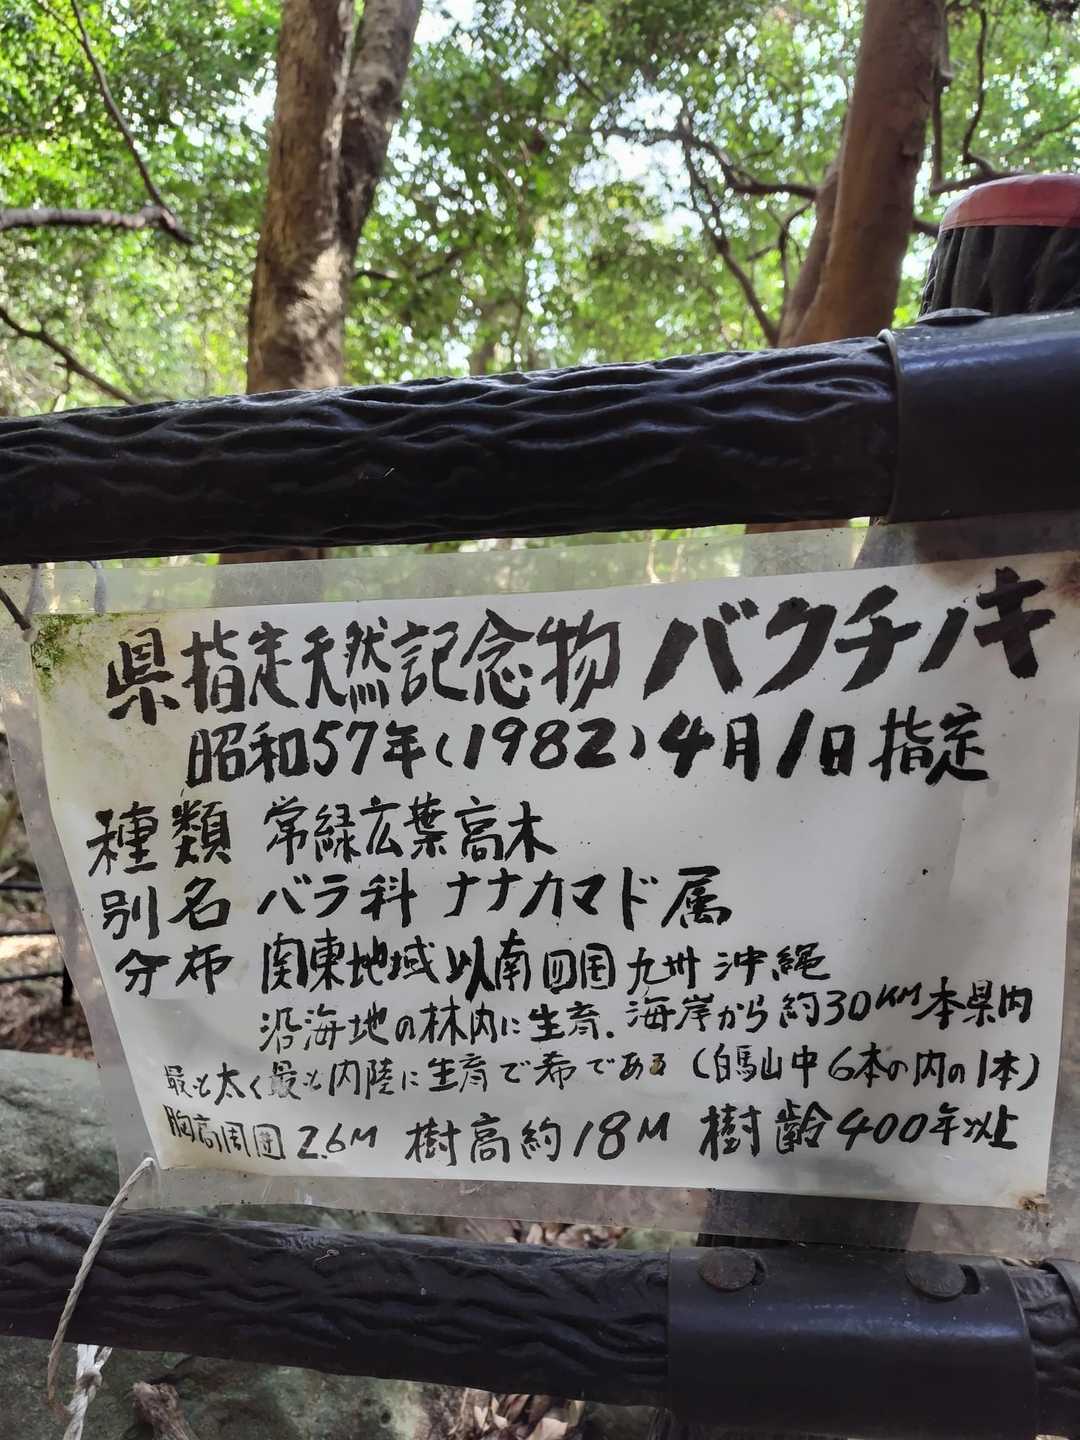 県指定天然記念物 バクチノキ
昭和57年(1982)4月1日指定
種類 常緑広葉高木
別名 バラ科 ナナカマド属
分布 関東地域以南 四国 九州 沖縄
沿海地の林内に生育. 海岸から約30KM本県内
最も太く最も内陸に生育で希である (白馬山中6本の内の1本)
胸高周囲 2.6M 樹高約18M 樹齢400年以上